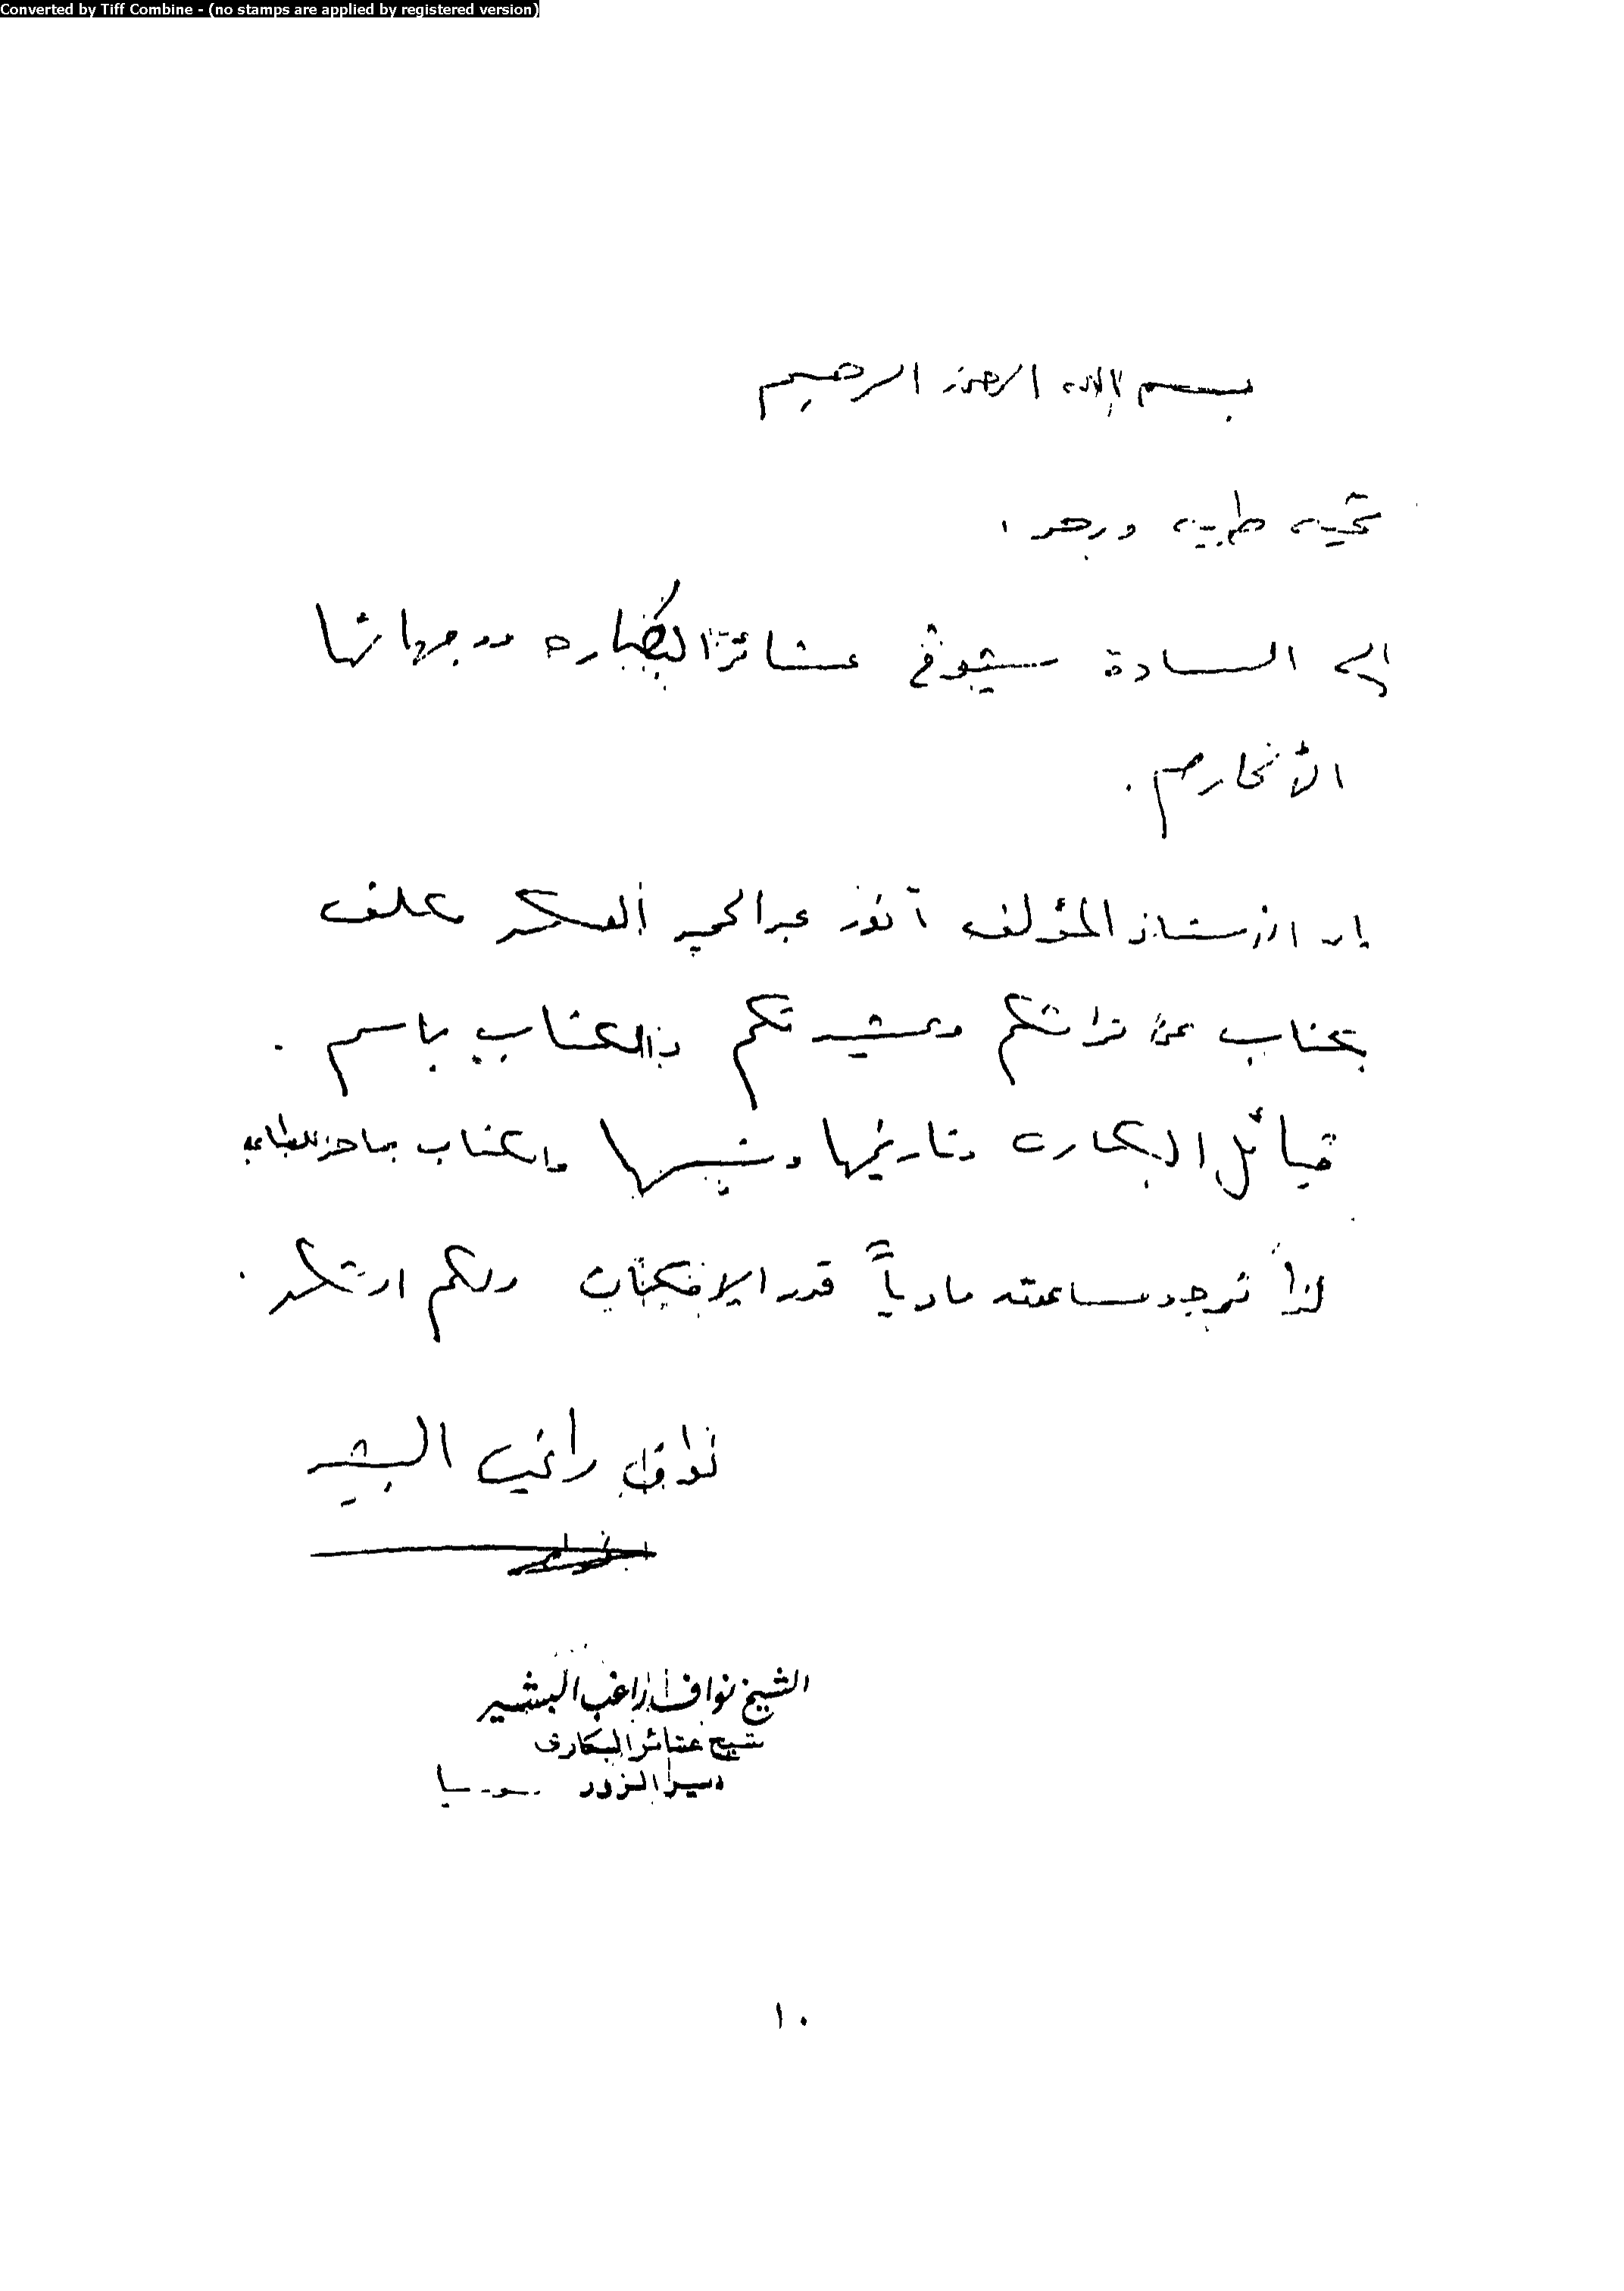 Converted by Tiff Combine - (no stamps are applied by registered version)
بسم الله الرحمن الرحيم
تحية طيبة وبعد ،
إلى السادة شيوخ عشائر البكاره ووجهائها
الأكارم .
إن الأستاذ المؤلف أنور عبد الحميد العسكر مكلف
بكتاب عن تراثكم وعشيرتكم والكتاب باسم .
قبائل البكارة وتاريخها ونسبها والكتاب للطباعه
لذا نرجو مساعدته مادياً قدر الإمكان ولكم الشكر .
نواف راغب البشير
الشيخ نواف راغب البشير
شيخ عشائر البكارة
ديرالزور سوريا
١٠